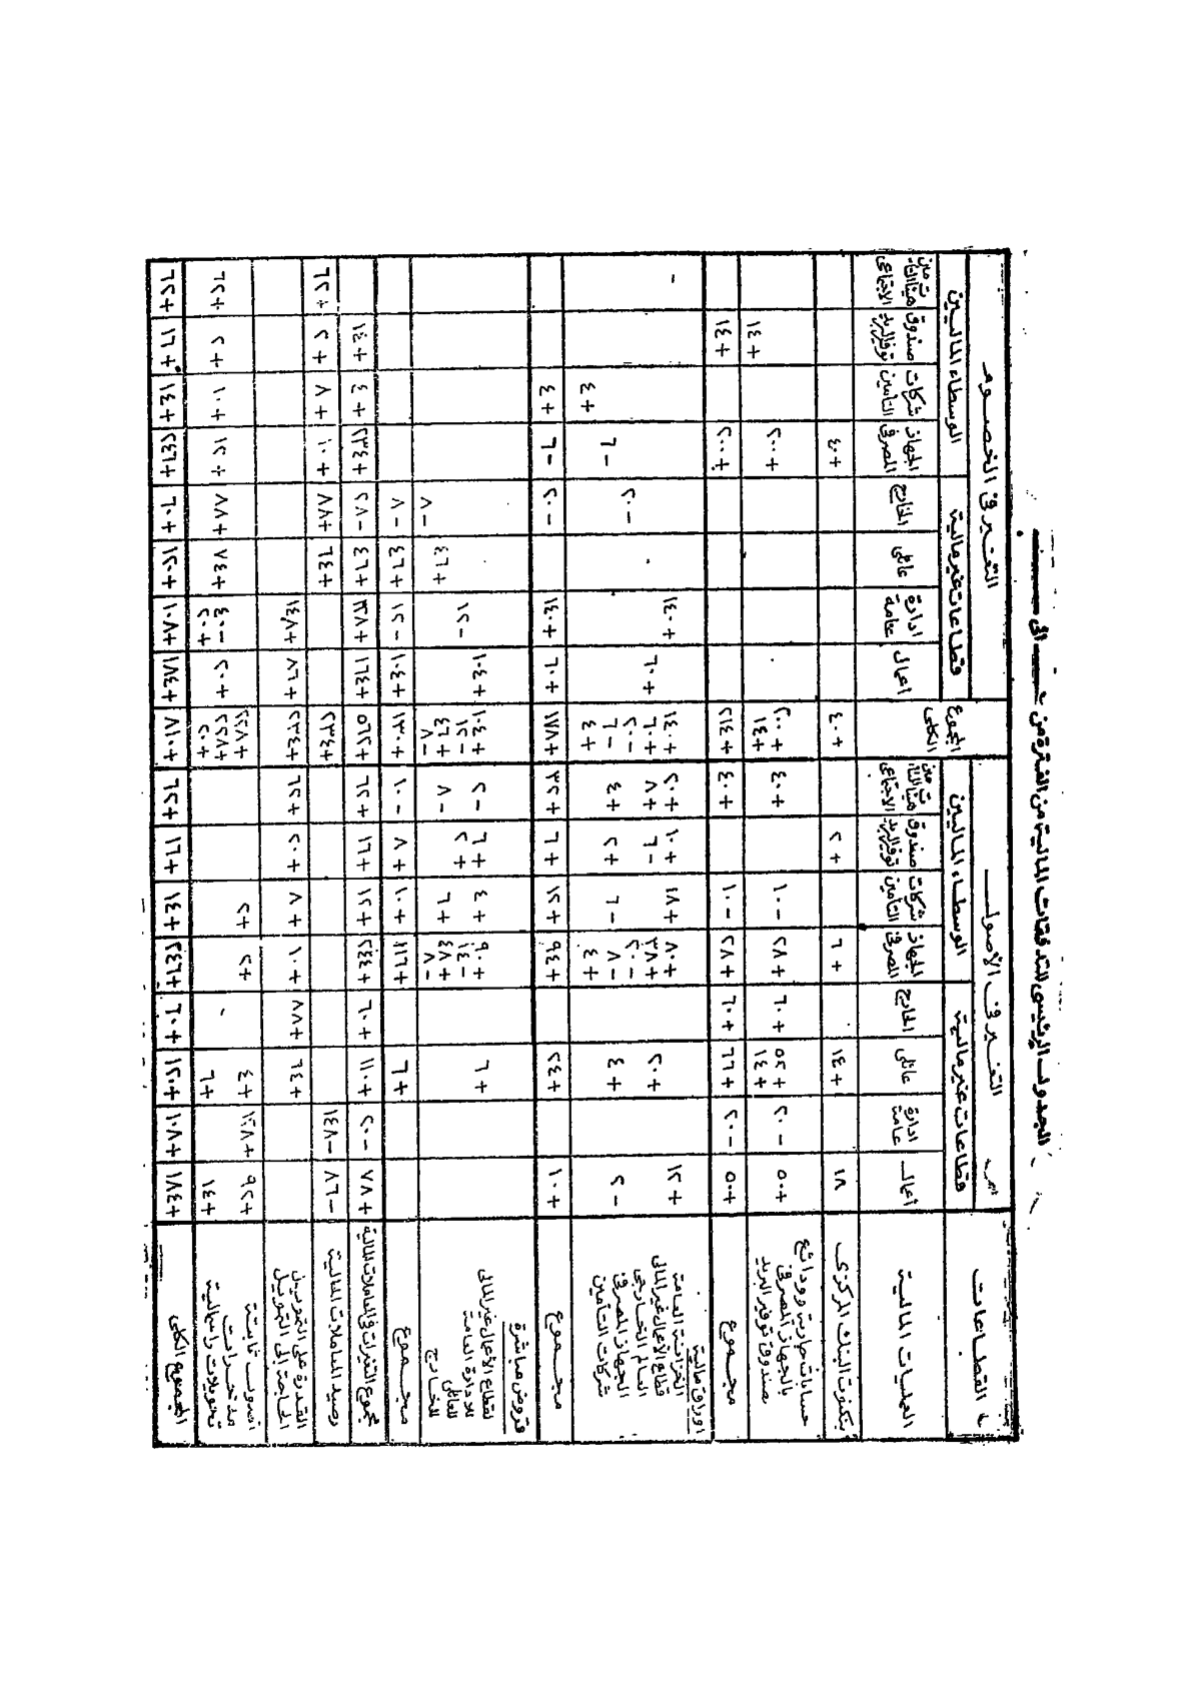 الجدول الرئيسى للتدفقات المالية من الفترة من الى
القطاعات التغير فى الأصول المجموع الكلى التغير فى الخصوم
قطاعات غير مالية الوسطاء الماليين قطاعات غير مالية الوسطاء الماليين
العمليات المالية أعمال ادارة عامة عائلى الخارج الجهاز المصرفى شركات التأمين صندوق توفير البريد هيئات التأمين الاجتماعى أعمال ادارة عامة عائلى الخارج الجهاز المصرفى شركات التأمين صندوق توفير البريد هيئات التأمين الاجتماعى
بنكنوت البنك المركزى ١٨ +١٤ +٦ +٢ +٤٠ +٤٠
حسابات جارية وودائع
بالجهاز المصرفى +٥٠ -٢٠ +٥٢ +٦٠ +٢٨ -١٠ +٤٠ +٢٠٠ +٢٠٠
بصندوق توفير البريد +١٤ +١٤ +١٤
مجموع +٥٠ -٢٠ +٦٦ +٦٠ +٢٨ -١٠ +٤٠ +٢١٤ +٢٠٠ +١٤
اوراق مالية
الخزانة العامة +١٢ +٢٠ +١٨ +١٠ +٢٠ +١٤٠
قطاع الأعمال غير المالى +٣٨ -٦ +٨ +٦٠ +٦٠
العالم الخارجى -٢٠ -٢٠ -٢٠
الجهاز المصرفى -٢ +٤ -٨ -٦ +٢ +٤ -٦ -٦
شركات التأمين +٤ +٤ +٤
مجموع +١٠ +٢٤ +٩٤ +١٢ +٦ +٣٢ +١٧٨ +٦٠ +١٤٠ -٢٠ -٦ +٤
قروض مباشرة
لقطاع الأعمال غير المالى +٦ +٩٠ +٤ +٦ -٢ +١٠٤ +١٠٤
للادارة العامة -١٤ +٢ -١٢ -١٢
للعائلى +٤٨ +٦ -٨ +٤٦ +٤٦
للخارج -٨ -٨ -٨
مجموع +٦ +١١٦ +١٠ +٨ -١٠ +١٣٠ +١٠٤ -١٢ +٤٦ -٨
مجموع التغيرات فى المعاملات المالية +٧٨ -٢٠ +١١٠ +٦٠ +٢٤٤ +١٢ +١٦ +٦٢ +٥٦٢ +١٦٤ +١٢٨ +٤٦ -٢٨ +٢٣٤ +٤ +١٤
رصيد المعاملات المالية -٨٦ -١٤٨ +٢٣٤ +٦٤ +٨٨ +١٠ +٨ +٢ +٦٢
القدرة على التمويل
الحاجة إلى التمويل +٦٤ +٨٨ +١٠ +٨ +٦٢ +٢٣٤ +٨٦ +١٤٨
اصول ثابتة +٤ +٢ +٢
مدخرات
تحويلات رأسمالية +١٤ +٦ +٢٠ +٢٠ +٢٠ +٨٨ +١٢ +١٠ +٢ +٦٢
المجموع الكلى +١٧٤ +١٠٨ +١٢٠ +٦٠ +٢٤٦ +١٤ +١٦ +٦٢ +١٧٤ +١٠٨ +١٢٠ +٦٠ +٢٤٦ +١٤ +١٦ +٦٢